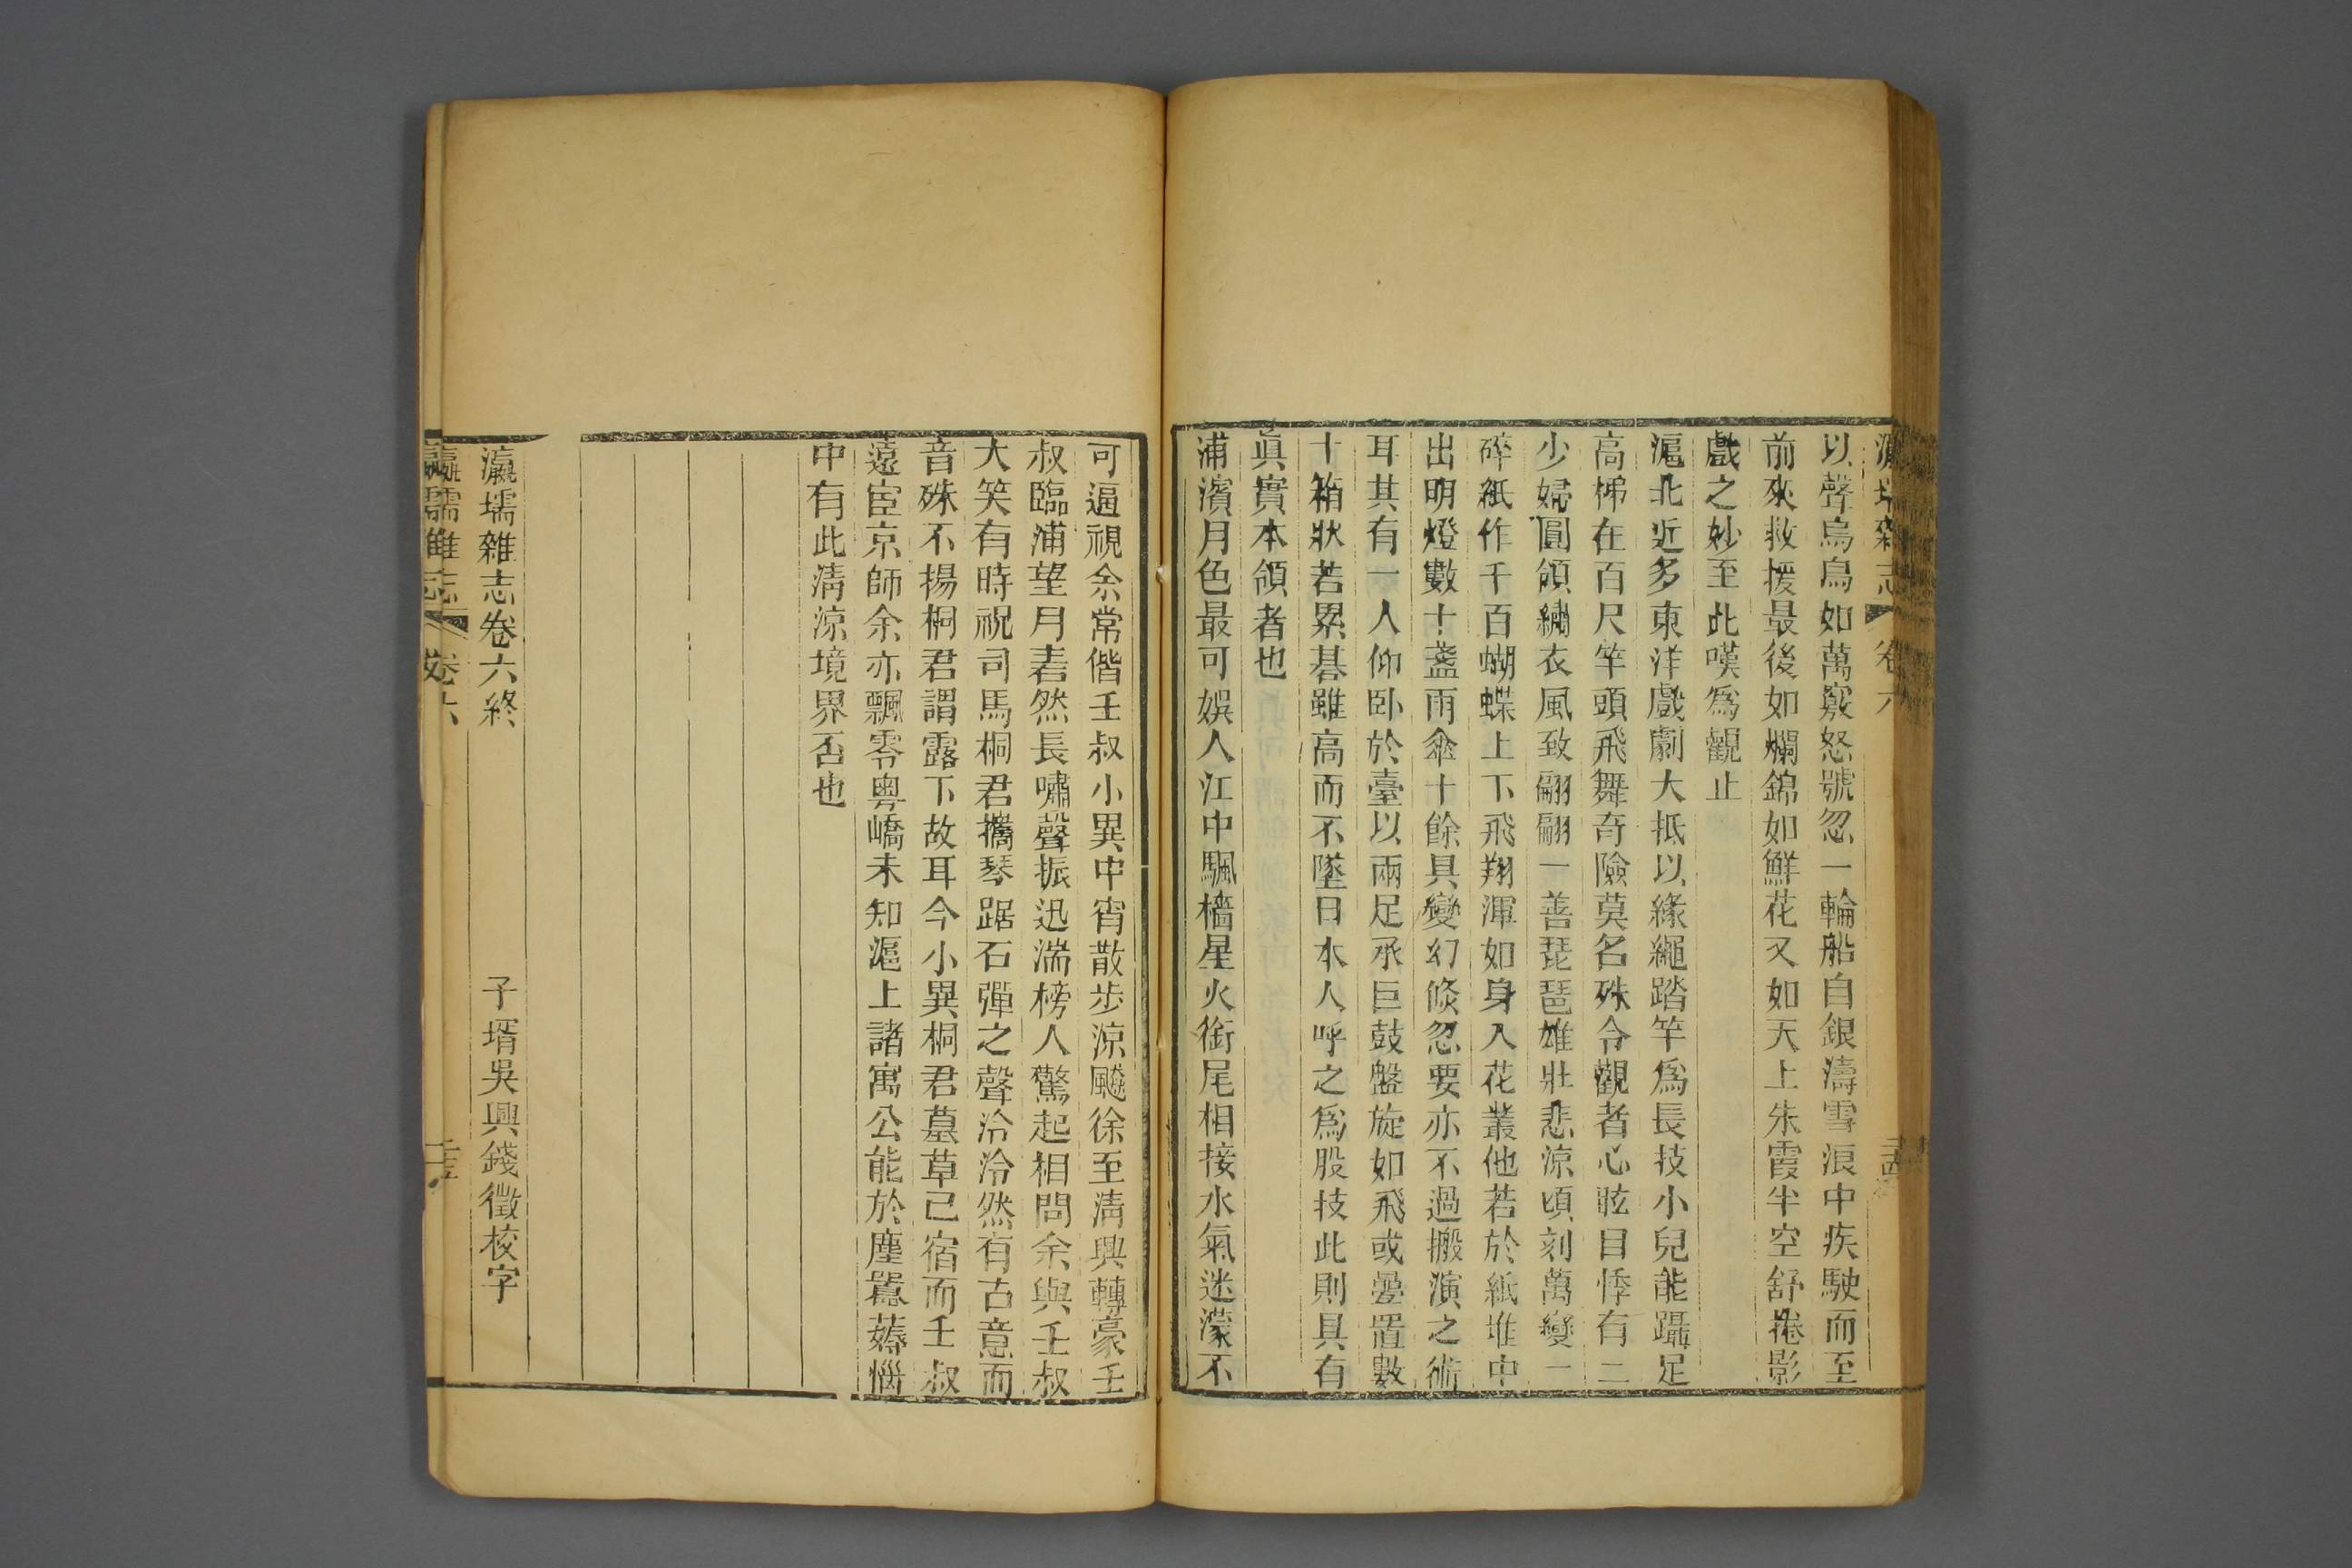 瀛壖雜志 卷六
以聲烏烏如萬竅怒號忽一輪船自銀濤雪浪中疾駛而至
前來救援最後如爛錦如鮮花又如天上朱霞半空舒捲影
戲之妙至此嘆爲觀止
滬北近多東洋戲劇大抵以緣繩踏竿爲長技小兒能躡足
高梯在百尺竿頭飛舞奇險莫名殊令觀者心眩目悸有二
少婦圓領繡衣風致翩翩一善琵琶雄壯悲涼頃刻萬變一
碎紙作千百蝴蝶上下飛翔渾如身入花叢他若於紙堆中
出明燈數十盞雨傘十餘具變幻倏忽要亦不過搬演之術
耳其有一人仰卧於臺以兩足承巨鼓盤旋如飛或疊置數
十箱狀若累碁雖高而不墜日本人呼之爲股技此則具有
眞實本領者也
浦濱月色最可娛人江中颿檣星火銜尾相接水氣迷濛不
可逼視余常偕壬叔小異中宵散步涼飈徐至淸興轉豪壬
叔臨浦望月砉然長嘯聲振迅湍榜人驚起相問余與壬叔
大笑有時祝司馬桐君攜琴踞石彈之聲泠泠然有古意而
音殊不揚桐君謂露下故耳今小異桐君墓草已宿而壬叔
遠宦京師余亦飄零粤嶠未知滬上諸寓公能於塵囂熱惱
中有此淸涼境界否也
瀛壖雜志卷六終
子壻吳興錢徵校字
瀛壖雜志 卷六